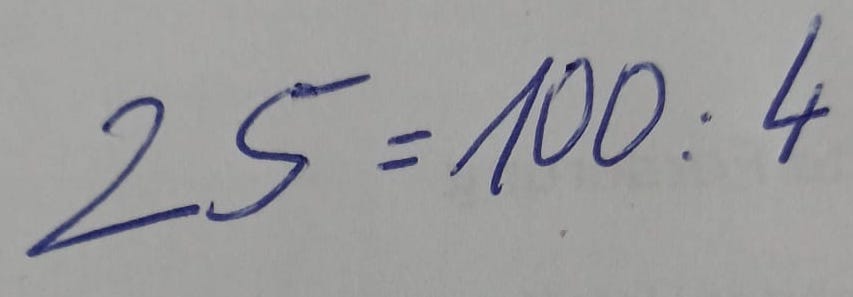 25 = 100 : 4